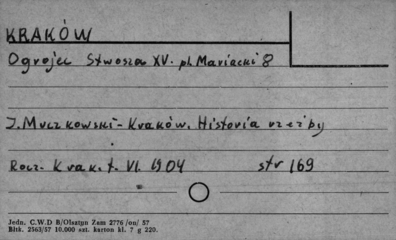 KRAKÓW
Ogrojec Stwosza XV. pl. Mariacki 8
J. Muczkowski - Kraków. Historia rzeźby
Rocz. Krak. t. VI. 1904 str 169
Jedn. C.W.D B/Olsztyn Zam 2776 /on/ 57
Bltk. 2563/57 10.000 szt. karton kl. 7 g 220.